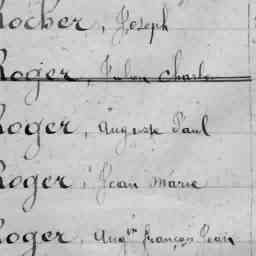 Rocher, Joseph
Roger, Julien Charles
Roger, Auguste Paul
Roger, Jean Marie
Roger, Aug.in françois Jean